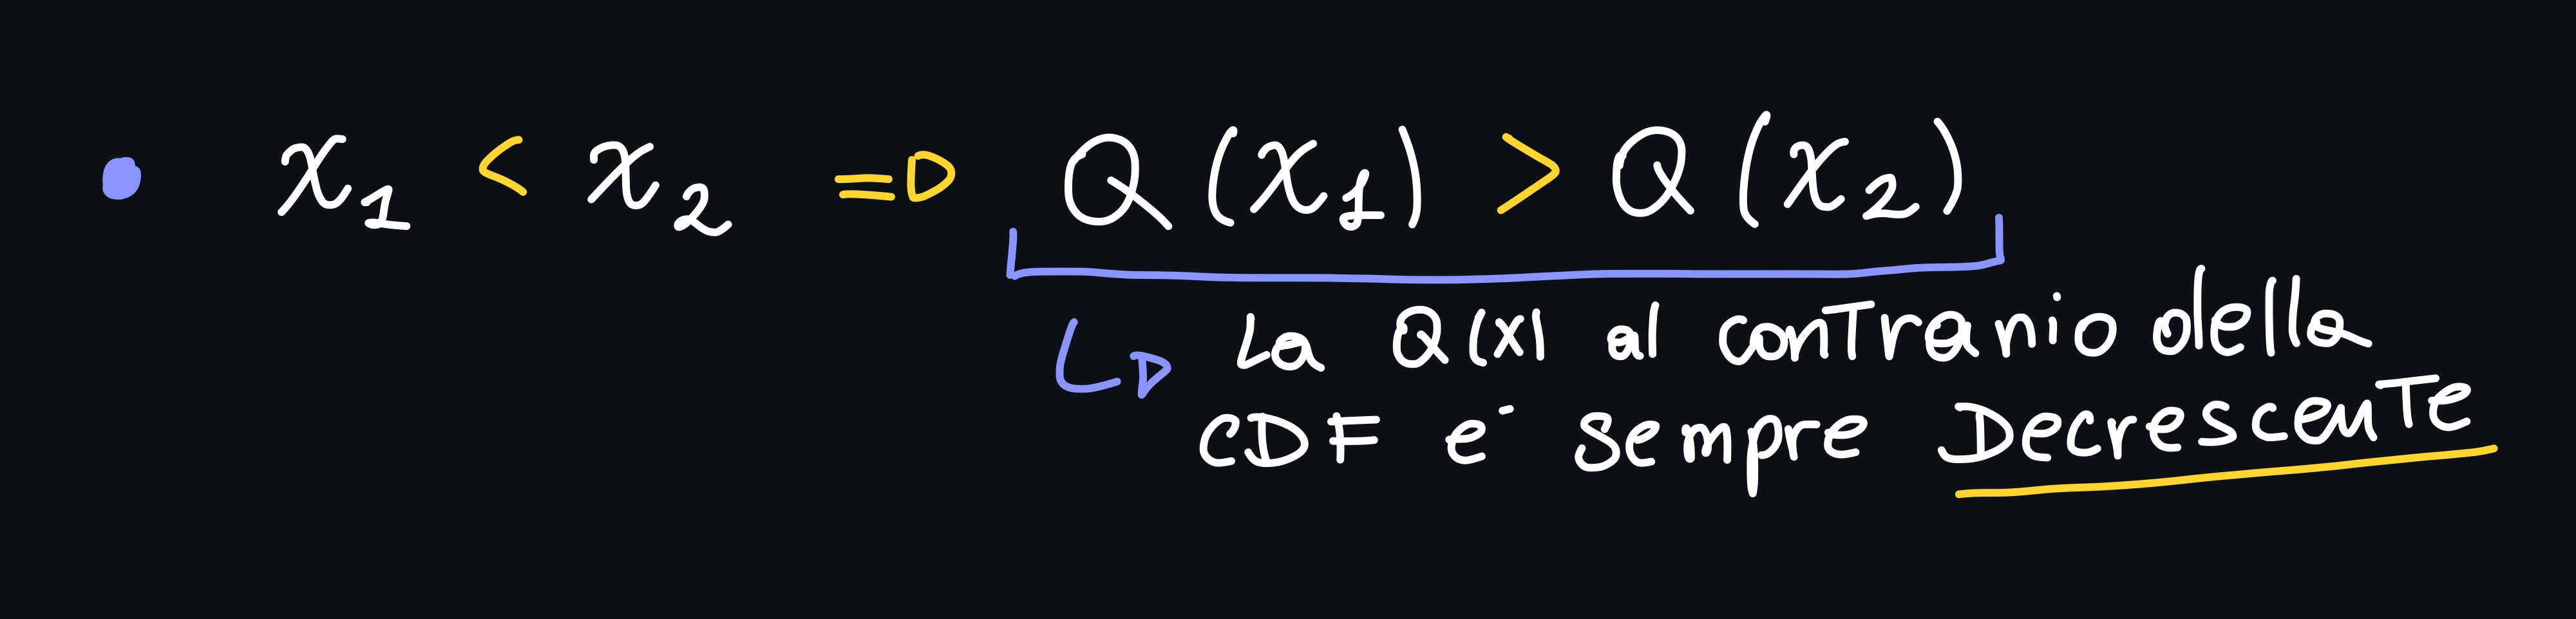 • x₁ < x₂ => Q(x₁) > Q(x₂)
La Q(x) al contrario della
CDF e' sempre Decrescente